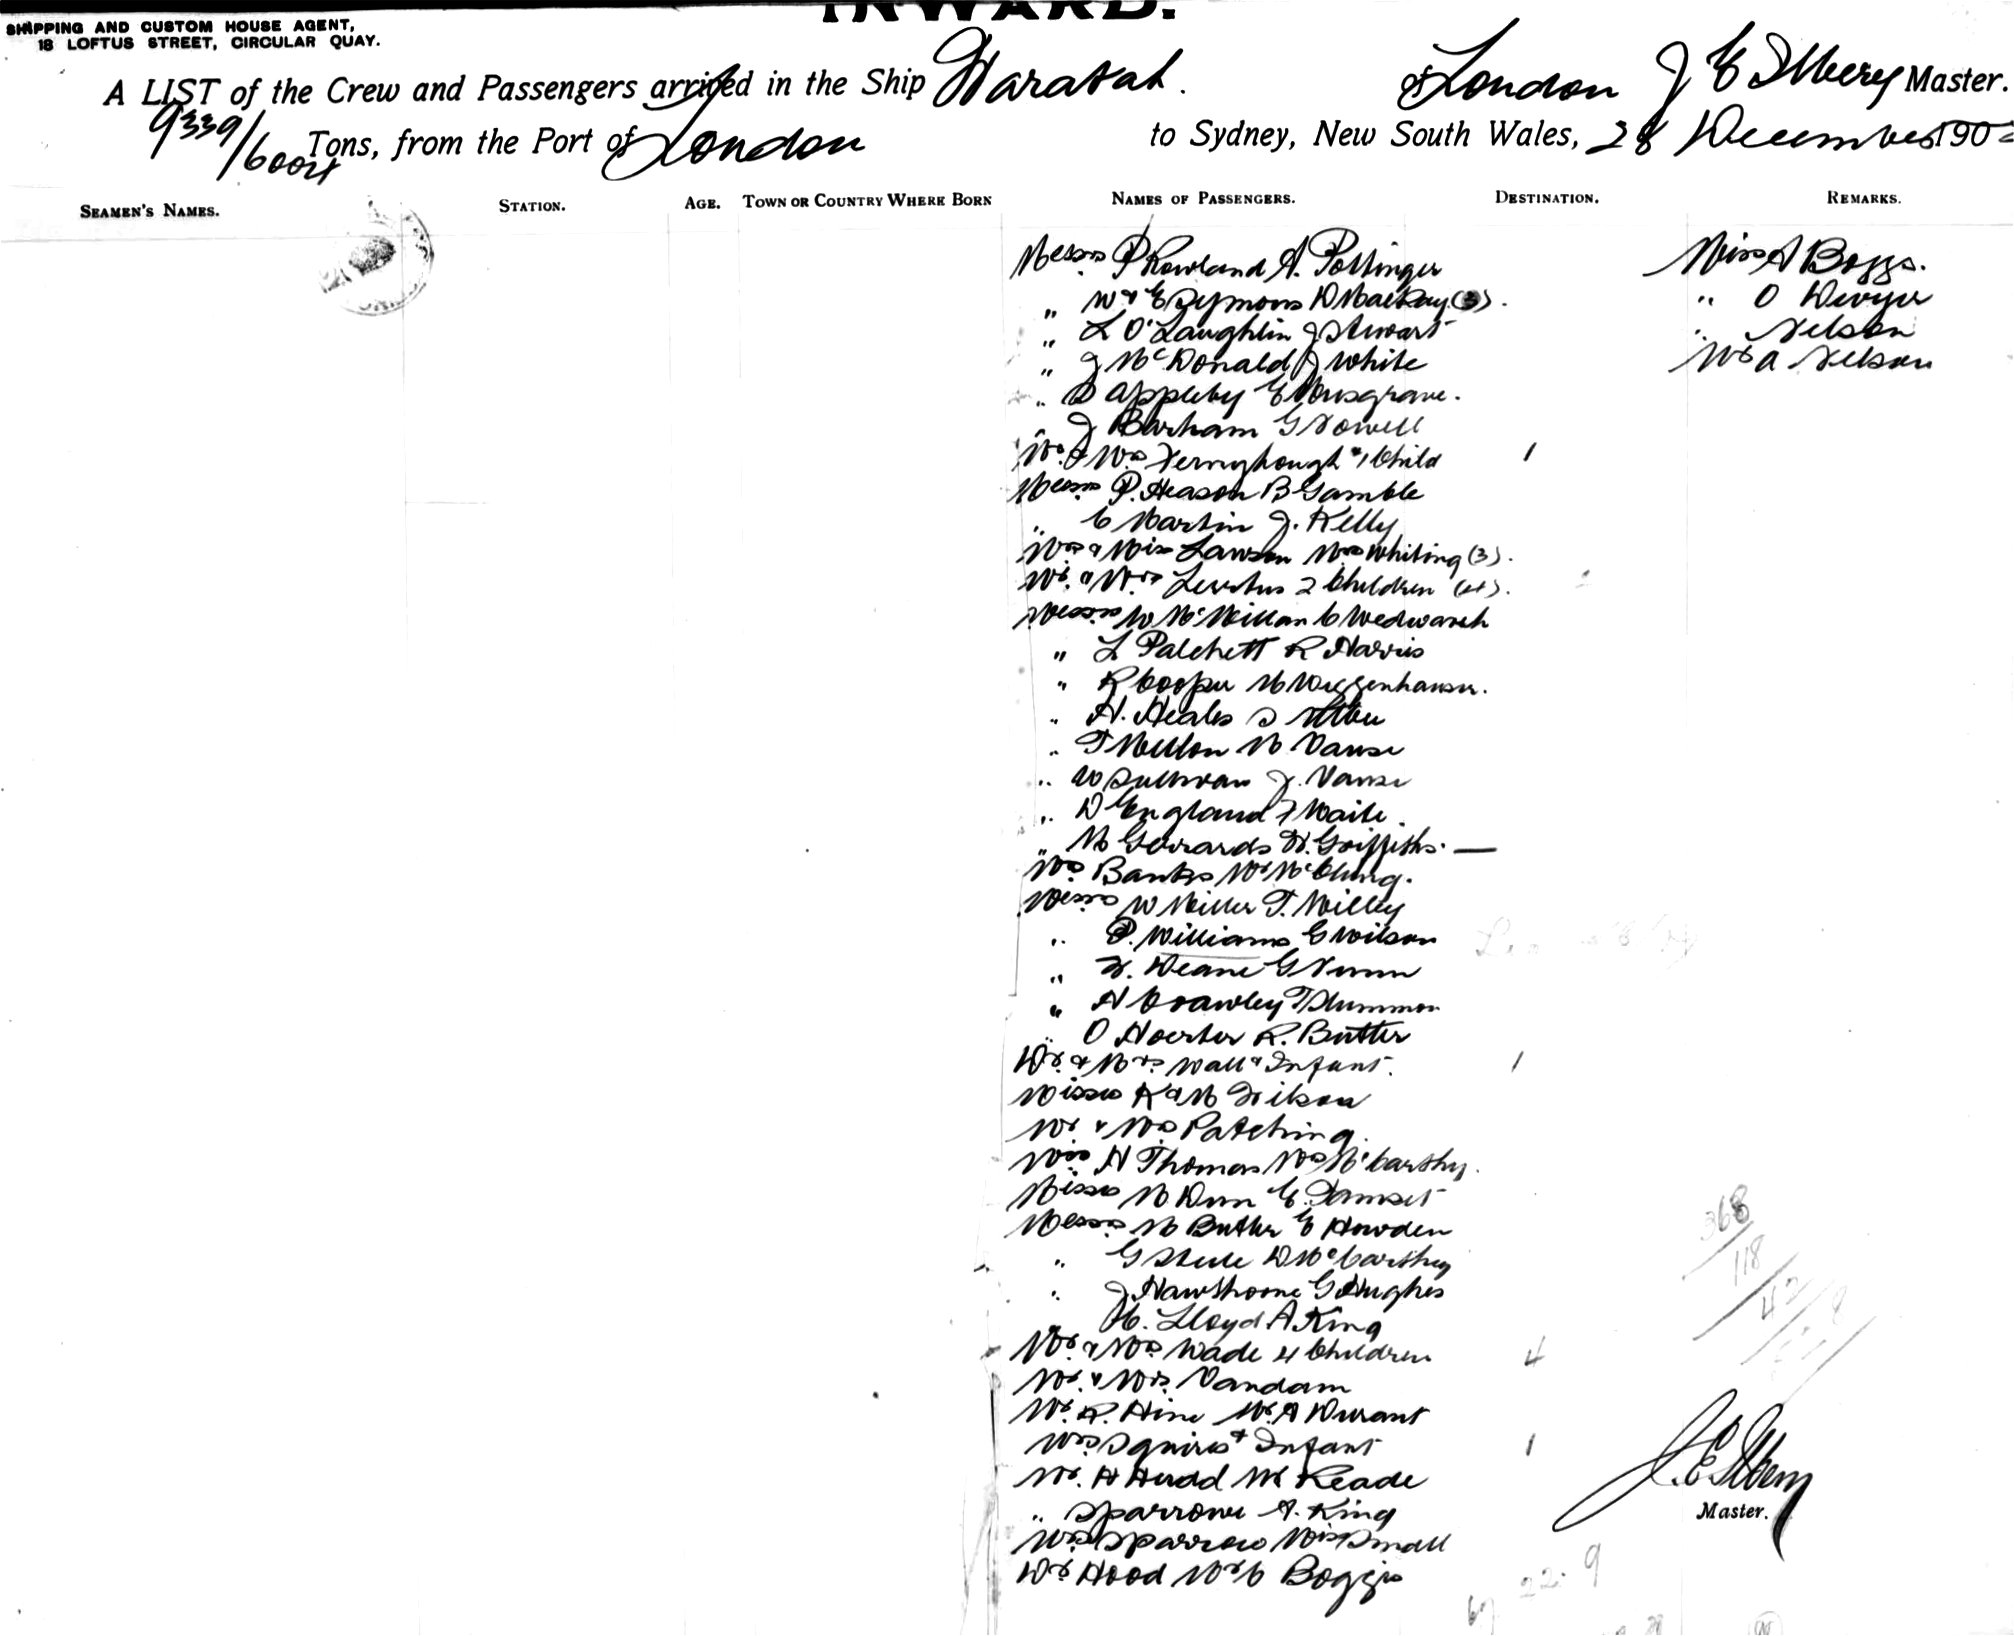 INWARD.
SHIPPING AND CUSTOM HOUSE AGENT,
18 LOFTUS STREET, CIRCULAR QUAY.
A LIST of the Crew and Passengers arrived in the Ship Waratah. of London J E Ilbery Master.
9339/6004 Tons, from the Port of London to Sydney, New South Wales, 28 December 190
SEAMEN'S NAMES. STATION. AGE. TOWN OR COUNTRY WHERE BORN NAMES OF PASSENGERS. DESTINATION. REMARKS.
Messrs P Rowland A. Pottinger Miss A Boggs.
" W & E Symons D Mackay (3). " O Dwyer
" L O'Laughlin J Stewart " Nelson
" J McDonald J White Mr A Nelson
" D Appleby E Musgrave.
J Barham G Nowell
Mr & Mrs Fernyhough & 1 Child 1
Messrs P. Heason B Gamble
" C Martin J. Kelly
Mrs & Miss Lawson Mrs Whiting (3).
Mr. & Mrs 2 Children (4).
Messrs W McMillan C
" L Patchett R Harris
" R Cooper M
" H. Heales S
" T Mellon M Vause
" W Sullivan J. Vause
" D England F Waite.
" M Gerrards H. Griffiths. —
Mrs Banks Mr McClung.
Messrs W Miller T. Milley
" P. Williams G Wilson
" F. Deane G Nunn
" H Crawley T Plummer
" O Hoerber R. Butler
Mr. & Mrs. Wall & Infant. 1
Misses K & M Wilson
Mr & Mrs Patching.
Miss H Thomas Mrs McCarthy.
Misses M Dunn E.
Messrs M Butler E Howden
" G Steele D McCarthy
" J Hawthorne G Hughes
H. Lloyd A King
Mr. & Mrs Wade 4 Children 4
Mr. & Mrs. Vandam
Mr. R. Hine Mr. A Durant
Mrs Squires & Infant 1
Mr. H Hudd Mr Reade
" Sparrow A. King
Mrs Sparrow Miss Small
Mr Hood Mr C Boggis
368
118
42
J. E. Ilbery
Master.
22. 9